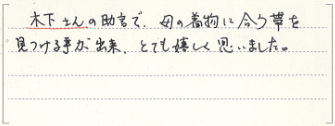 木下さんの助言で、母の着物に合う帯を
見つける事が出来、とても嬉しく思いました。